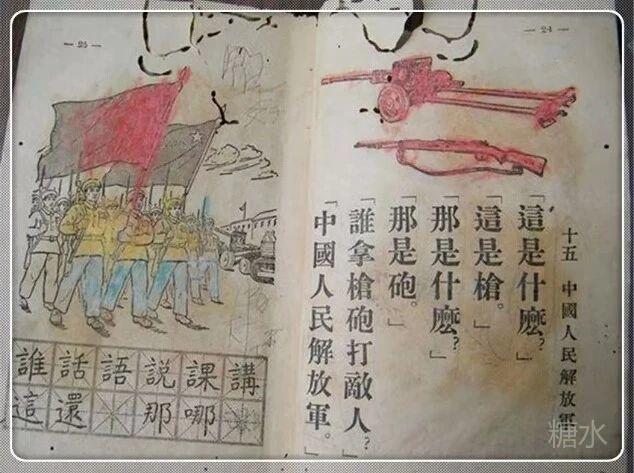 — 24 —
十五 中國人民解放軍
「這是什麽?」
「這是槍。」
「那是什麽?」
「那是砲。」
「誰拿槍砲打敵人?」
「中國人民解放軍。」
— 25 —
講課説語話誰
哪那還這
糖水